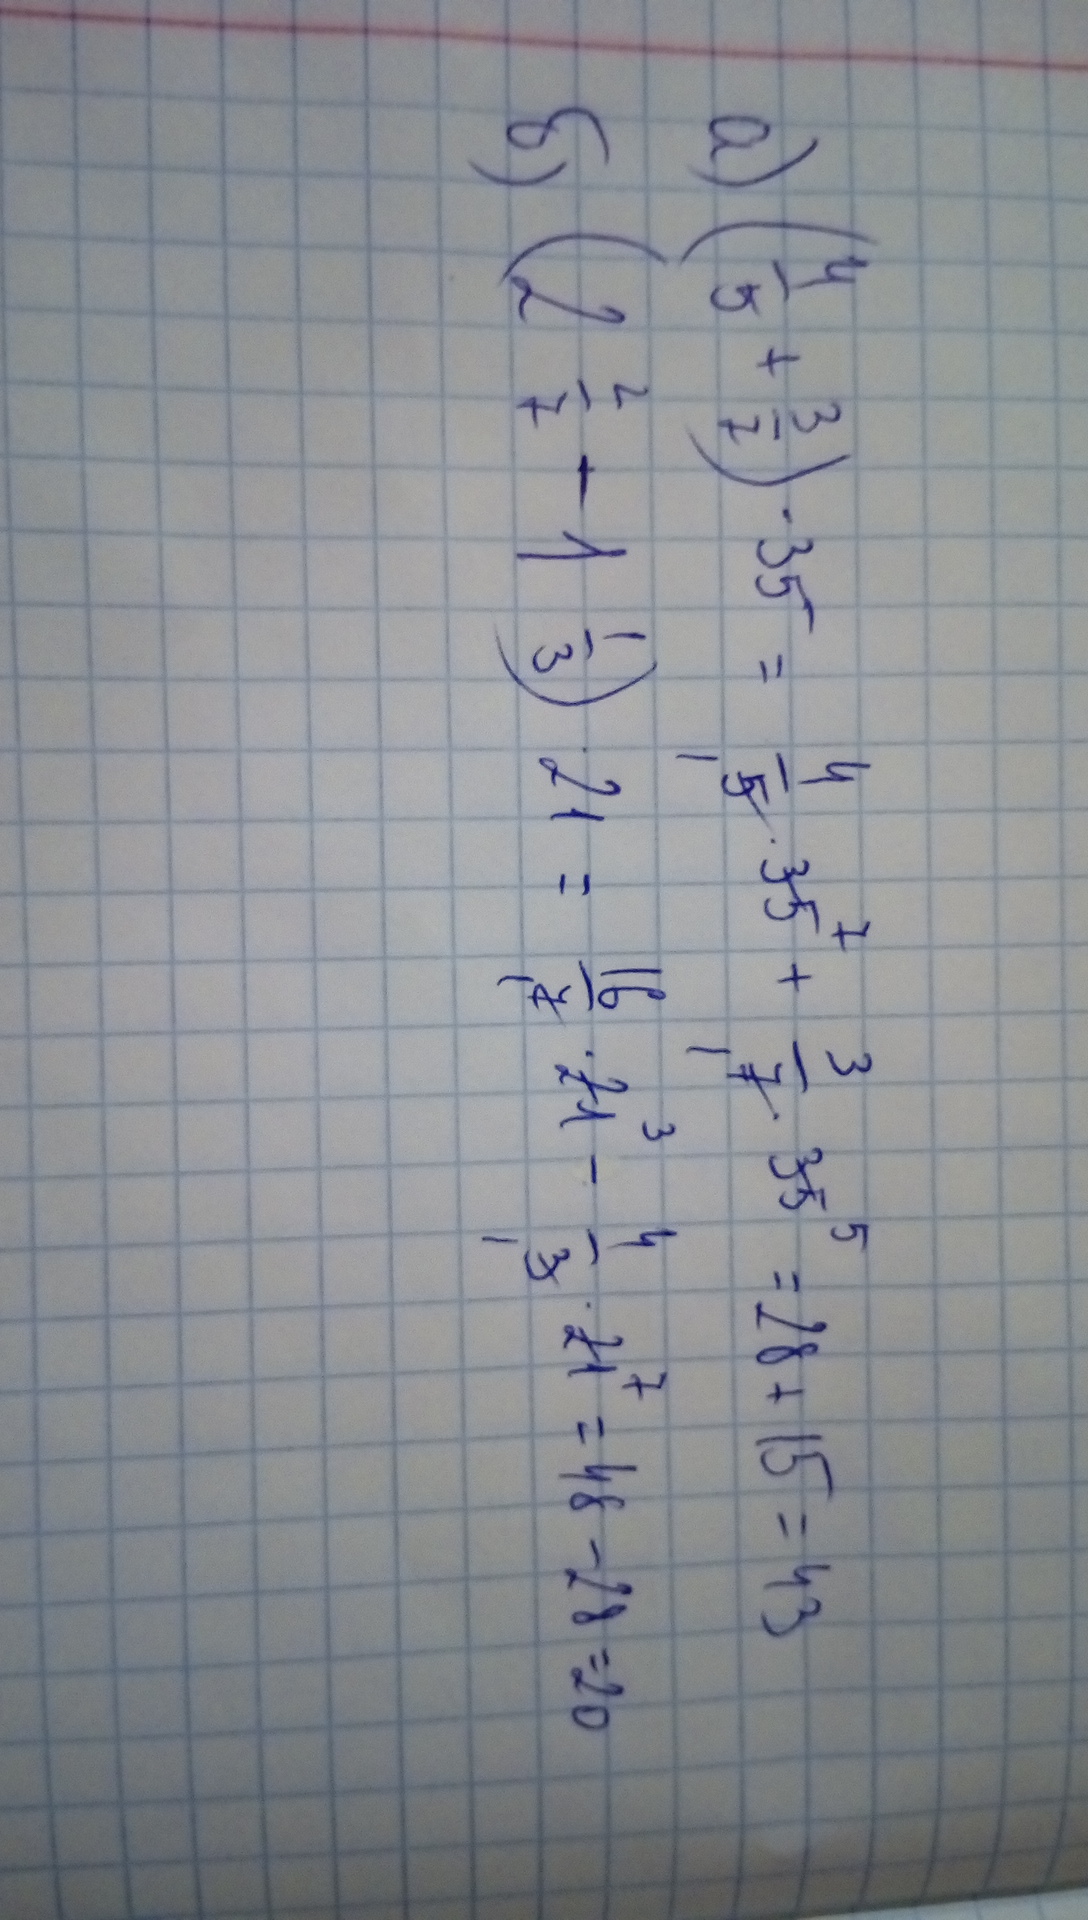 а) (4/5 + 3/7) · 35 = 4/5 · 35 + 3/7 · 35 = 28 + 15 = 43
1 7 1 5
б) (2 2/7 - 1 1/3) · 21 = 16/7 · 21 - 4/3 · 21 = 48 - 28 = 20
1 3 1 7